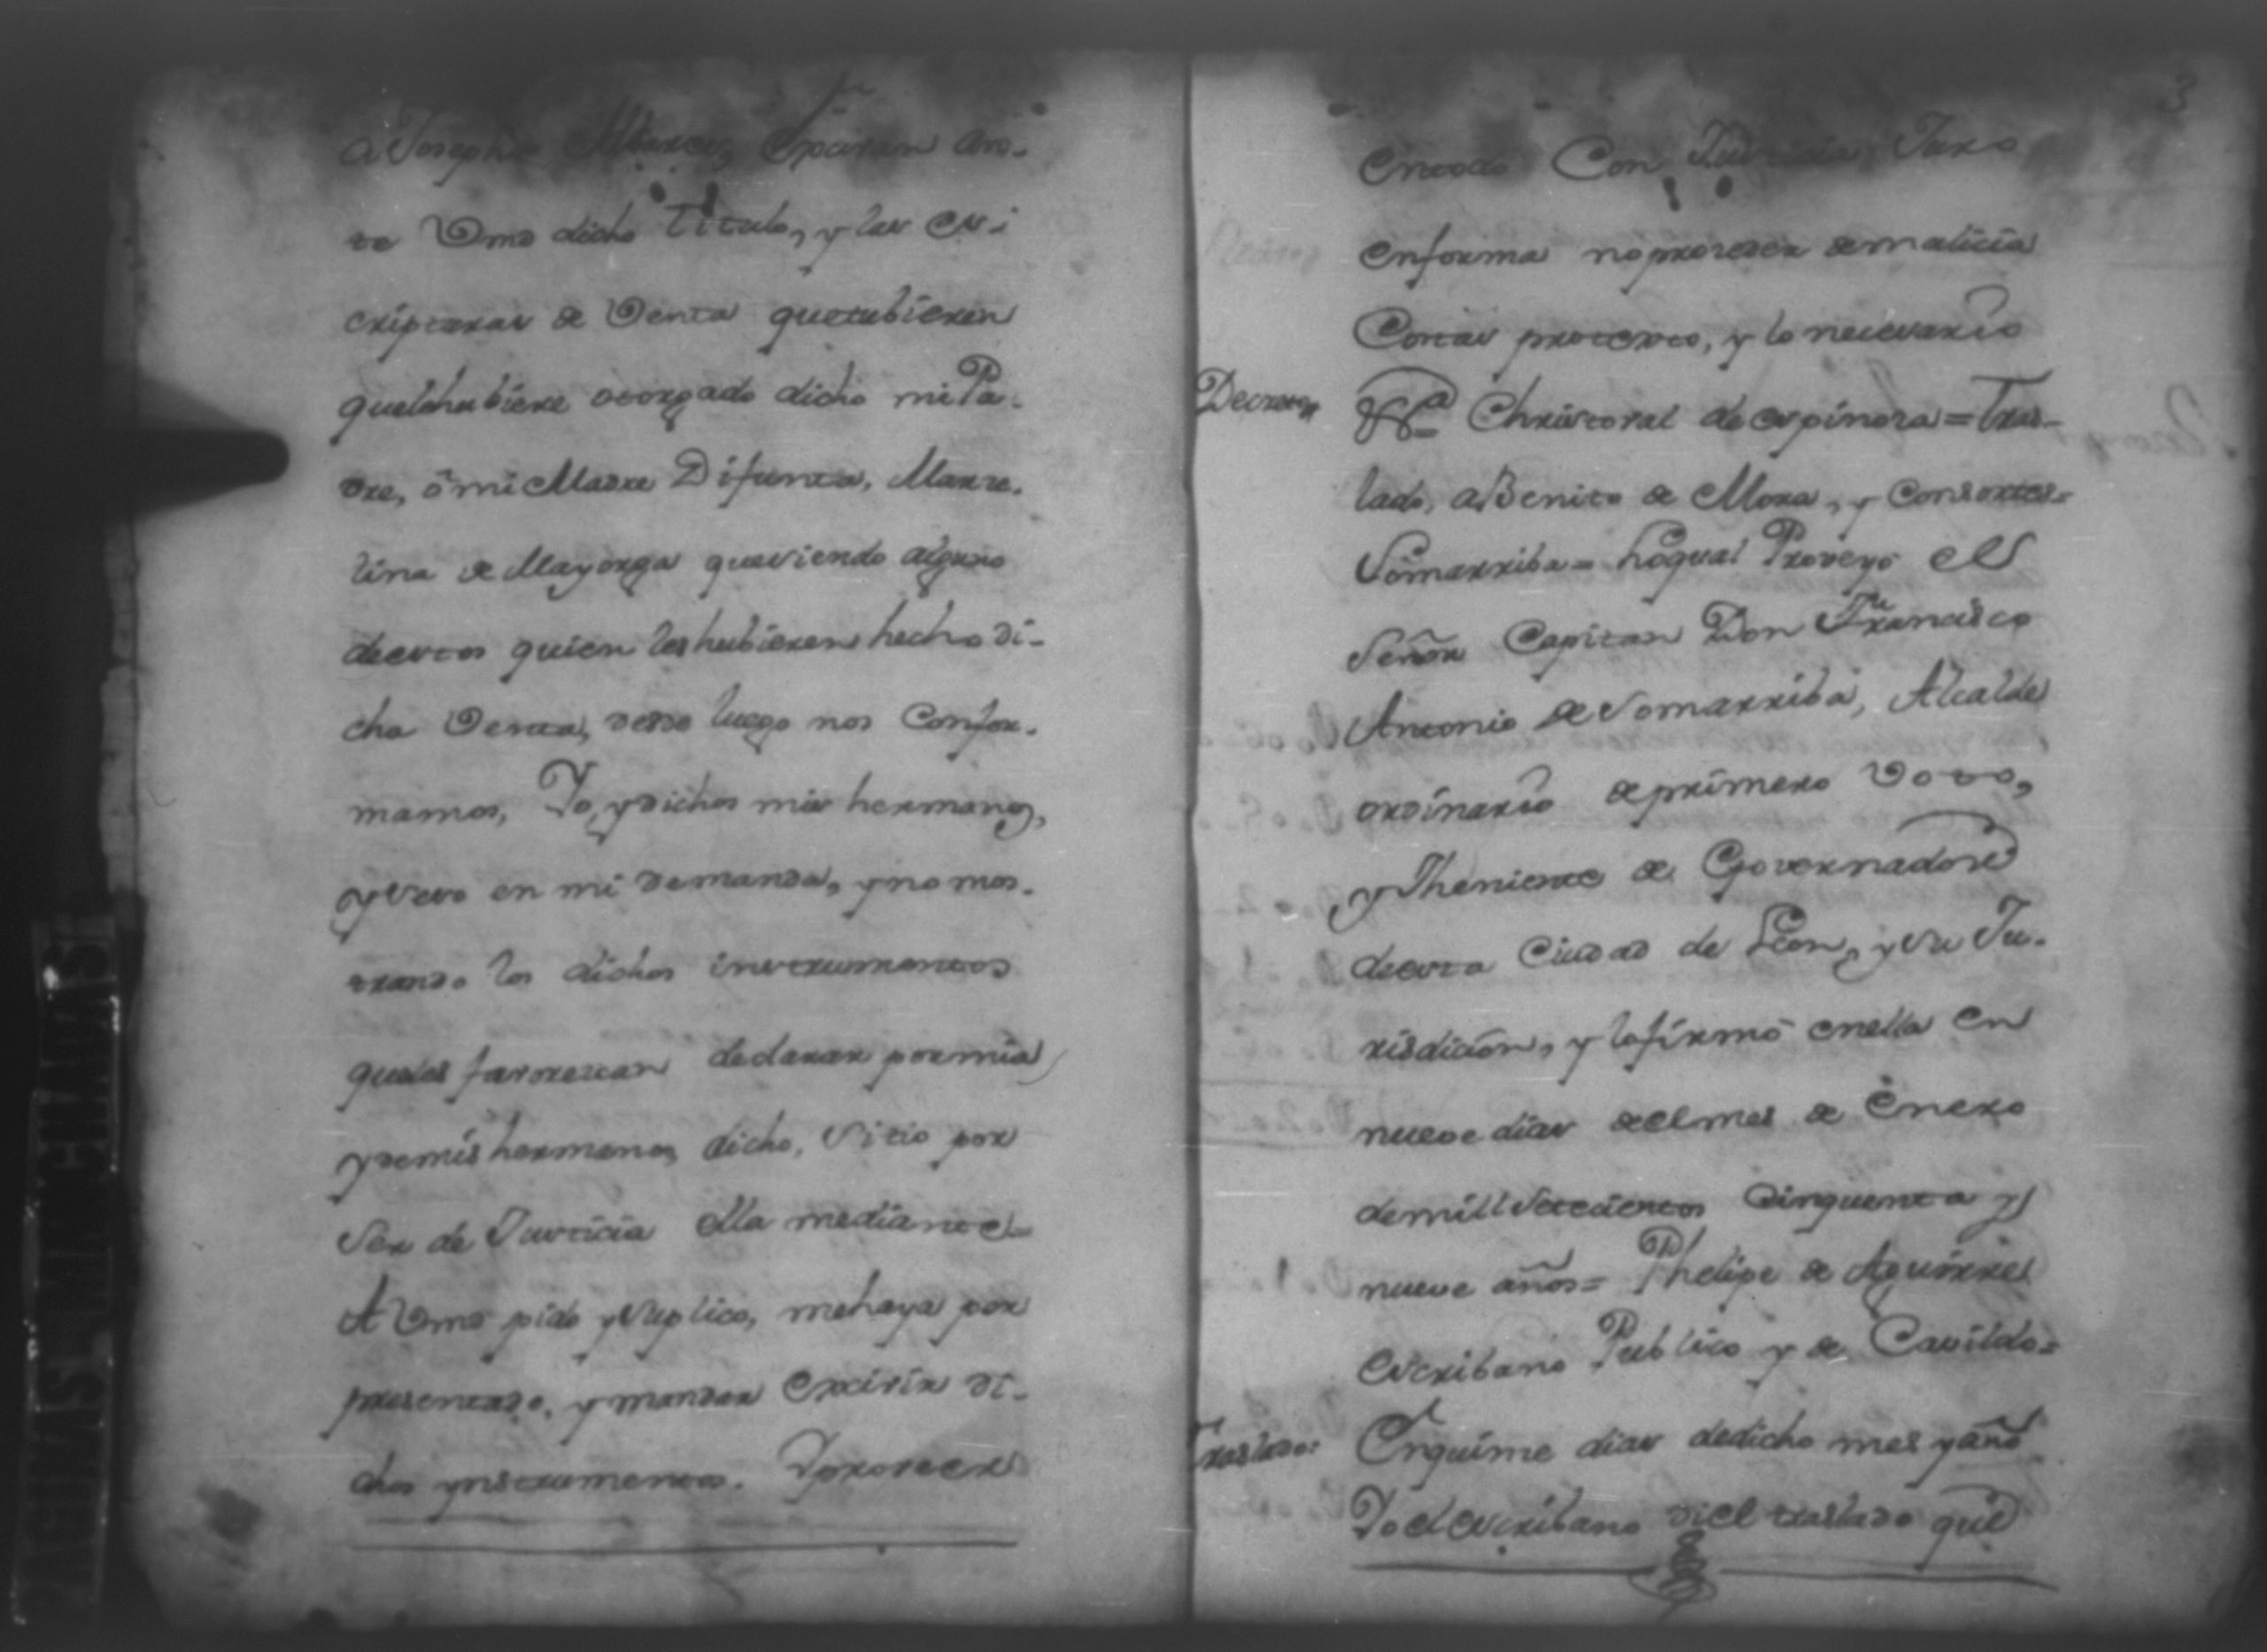 a Josepha Alvarez, Exparan an-
te Vmd dicho titulo, y las es i
cripturas de Venta que tubieren
que les hubiere otorgado dicho mi Pa-
dre, ô mi Madre Difunta, Marze-
lina de Mayorga que siendo alguno
de estos quien les hubieren hecho di-
cha Venta, desde luego nos Confor-
mamos, Yo, y dichos mis hermanos,
y Seso en mi demanda, y no mos-
trando los dichos instrumentos
que les favorezcan declarar por mia
y de mis hermanos dicho, Sitio por
Ser de Justicia ella mediante
A Vmd pido y Suplico, me haya por
presentado, y mandar Exxivir di-
chos ynstrumentos. Y proveer
3
En todo Con Justicia Juro
en forma no proceder de malicia
Costas protesto, y lo necesario
Decreto Christoval de espinosa = Tras-
lado, a Benito de Mora, y Consortes =
Somarriba = Lo qual Proveyo El
Señor Capitan Don Francisco
Antonio de Somarriba, Alcalde
ordinario de primero Voto,
y Theniente de Governador
de esta Ciudad de Leon, y su Ju-
risdicion, y lo firmó en ella en
nueve dias del mes de Enero
de mill Setecientos Cinquenta y
nueve años = Phelipe de Aguirre
Escribano Publico y de Cavildo =
Traslado: En quinse dias de dicho mes y año
Yo el escribano di el traslado que